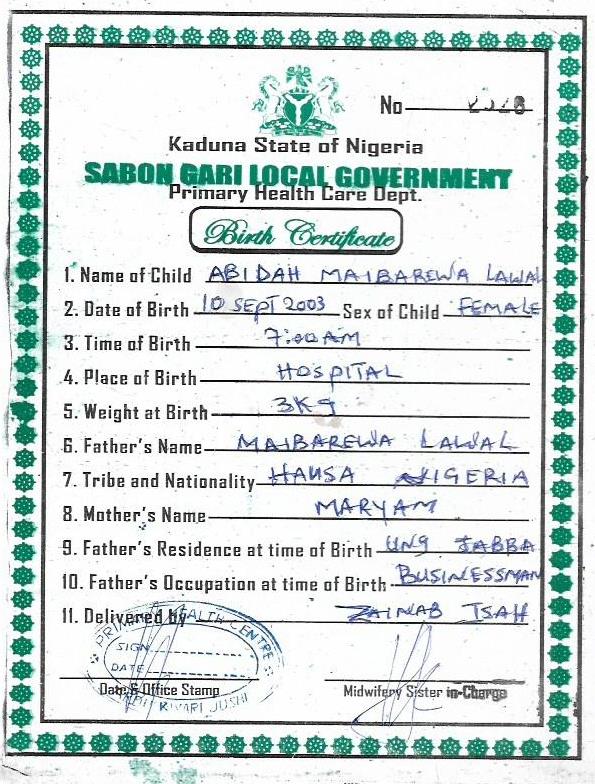 No
Kaduna State of Nigeria
SABON GARI LOCAL GOVERNMENT
Primary Health Care Dept.
Birth Certificate
1. Name of Child ABIDAH MAIBAREWA LAWAL
2. Date of Birth 10 SEPT 2003 Sex of Child FEMALE
3. Time of Birth 7:00AM
4. Place of Birth HOSPITAL
5. Weight at Birth 3Kg
6. Father's Name MAIBAREWA LAWAL
7. Tribe and Nationality HAUSA NIGERIA
8. Mother's Name MARYAM
9. Father's Residence at time of Birth UNG JABBA
10. Father's Occupation at time of Birth BUSINESSMAN
11. Delivered by ZAINAB ISAH
PRIMARY HEALTH CENTRE
SIGN
DATE
Date & Office Stamp
Midwifery Sister in-Charge